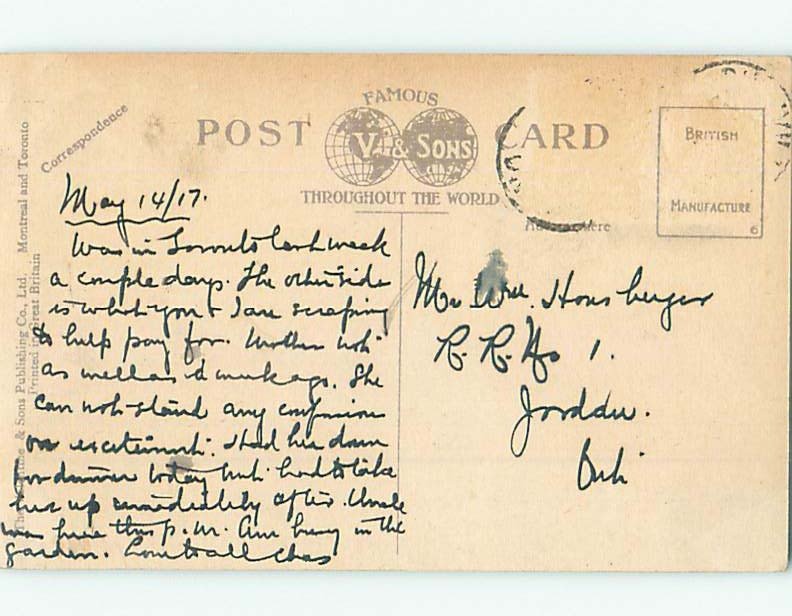 FAMOUS
POST V. & SONS CARD
THROUGHOUT THE WORLD
Correspondence
BRITISH
MANUFACTURE
6
& Sons Publishing Co., Ltd. Montreal and Toronto
Printed in Great Britain
May 14/17.
Was in Toronto last week
a couple days. The other side
is what you & I are scraping
to help pay for. Mother not
as well as a week ago. She
can not stand any confusion
or excitement. Had her down
for dinner today but had to take
her up immediately after. Uncle
was here this p.m. Am busy in the
garden. Love to all Chas
Mr Wm. Honsberger
R. R. No 1.
Jordan.
Ont